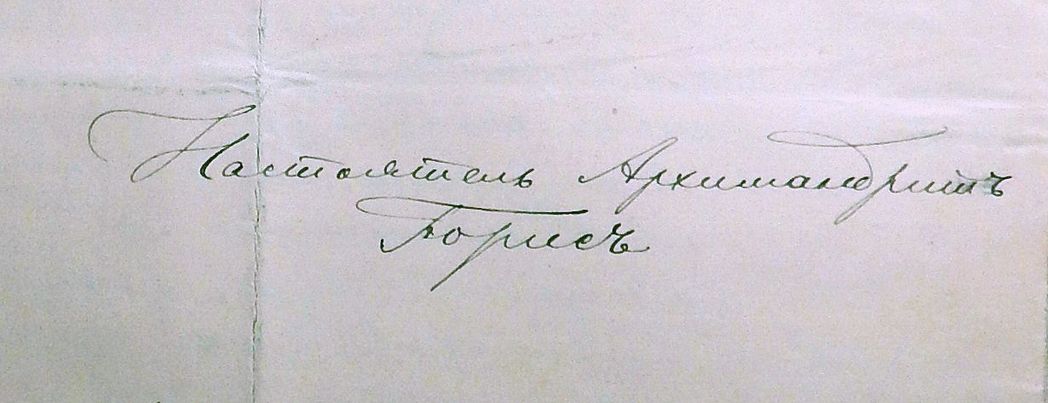 Настоятель Архимандритъ
Борисъ